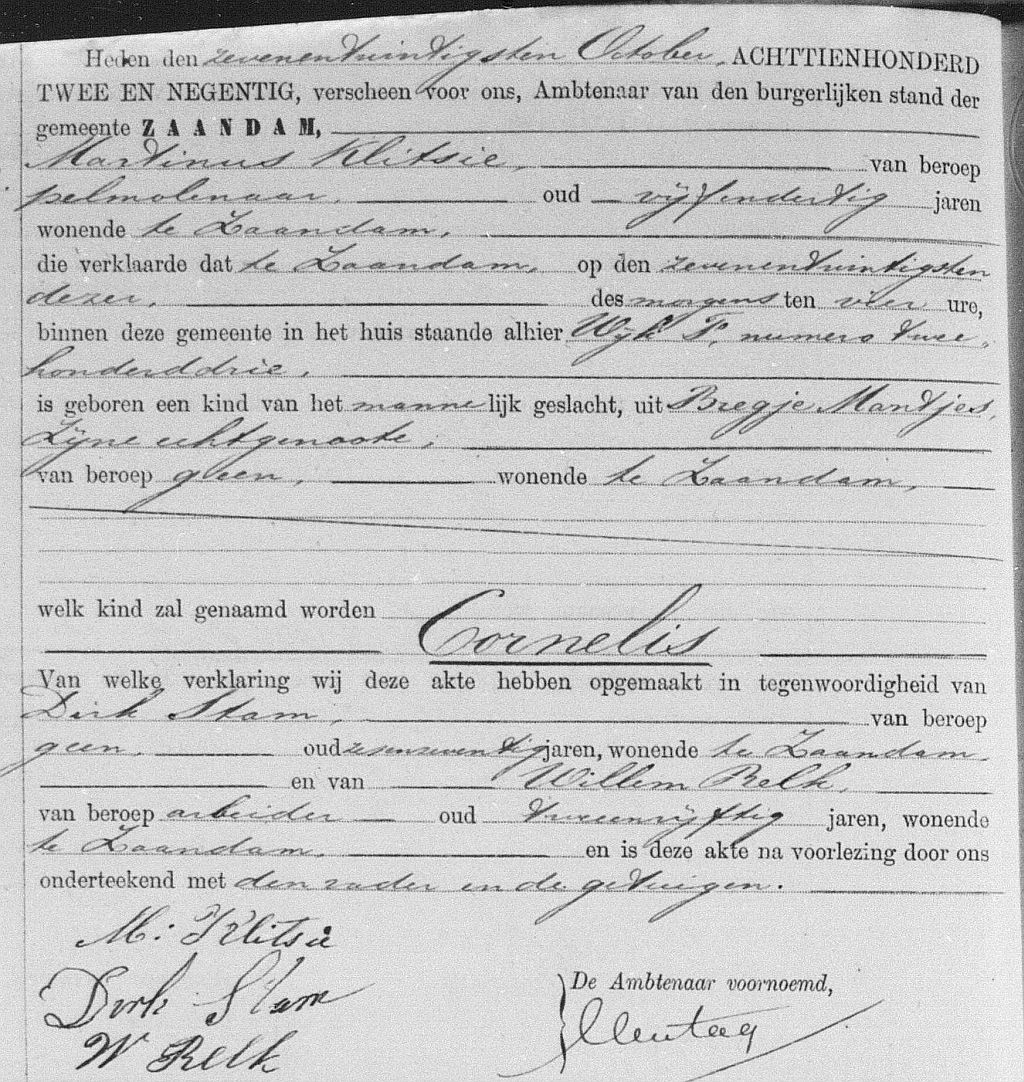 Heden den zevenentwintigsten October, ACHTTIENHONDERD
TWEE EN NEGENTIG, verscheen voor ons, Ambtenaar van den burgerlijken stand der
gemeente ZAANDAM,
Martinus Klitsie, van beroep
pelmolenaar, oud vijfendertig jaren
wonende te Zaandam,
die verklaarde dat te Zaandam, op den zevenentwintigsten
dezer, des morgens ten vier ure,
binnen deze gemeente in het huis staande alhier Wijk F, numero twee
honderddrie,
is geboren een kind van het mannelijk geslacht, uit Bregje Mantjes,
Zijne echtgenoote,
van beroep geen, wonende te Zaandam,
welk kind zal genaamd worden
Cornelis
Van welke verklaring wij deze akte hebben opgemaakt in tegenwoordigheid van
Dirk Stam, van beroep
geen, oud zesenzeventig jaren, wonende te Zaandam,
en van Willem Relk,
van beroep arbeider oud tweenvijftig jaren, wonende
te Zaandam, en is deze akte na voorlezing door ons
onderteekend met den vader en de getuigen.
M: Klitsie
Dirk Stam
De Ambtenaar voornoemd,
W Relk